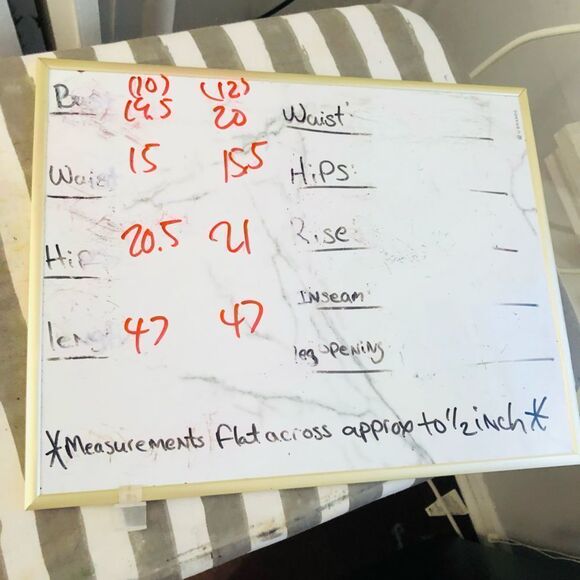 (10) (12)
19.5 20
Waist
15 15.5
Hip 20.5 21
length 47 47
Waist:
Hips:
Rise
INseam
leg opening
*Measurements flat across approx to 1/2 inch*